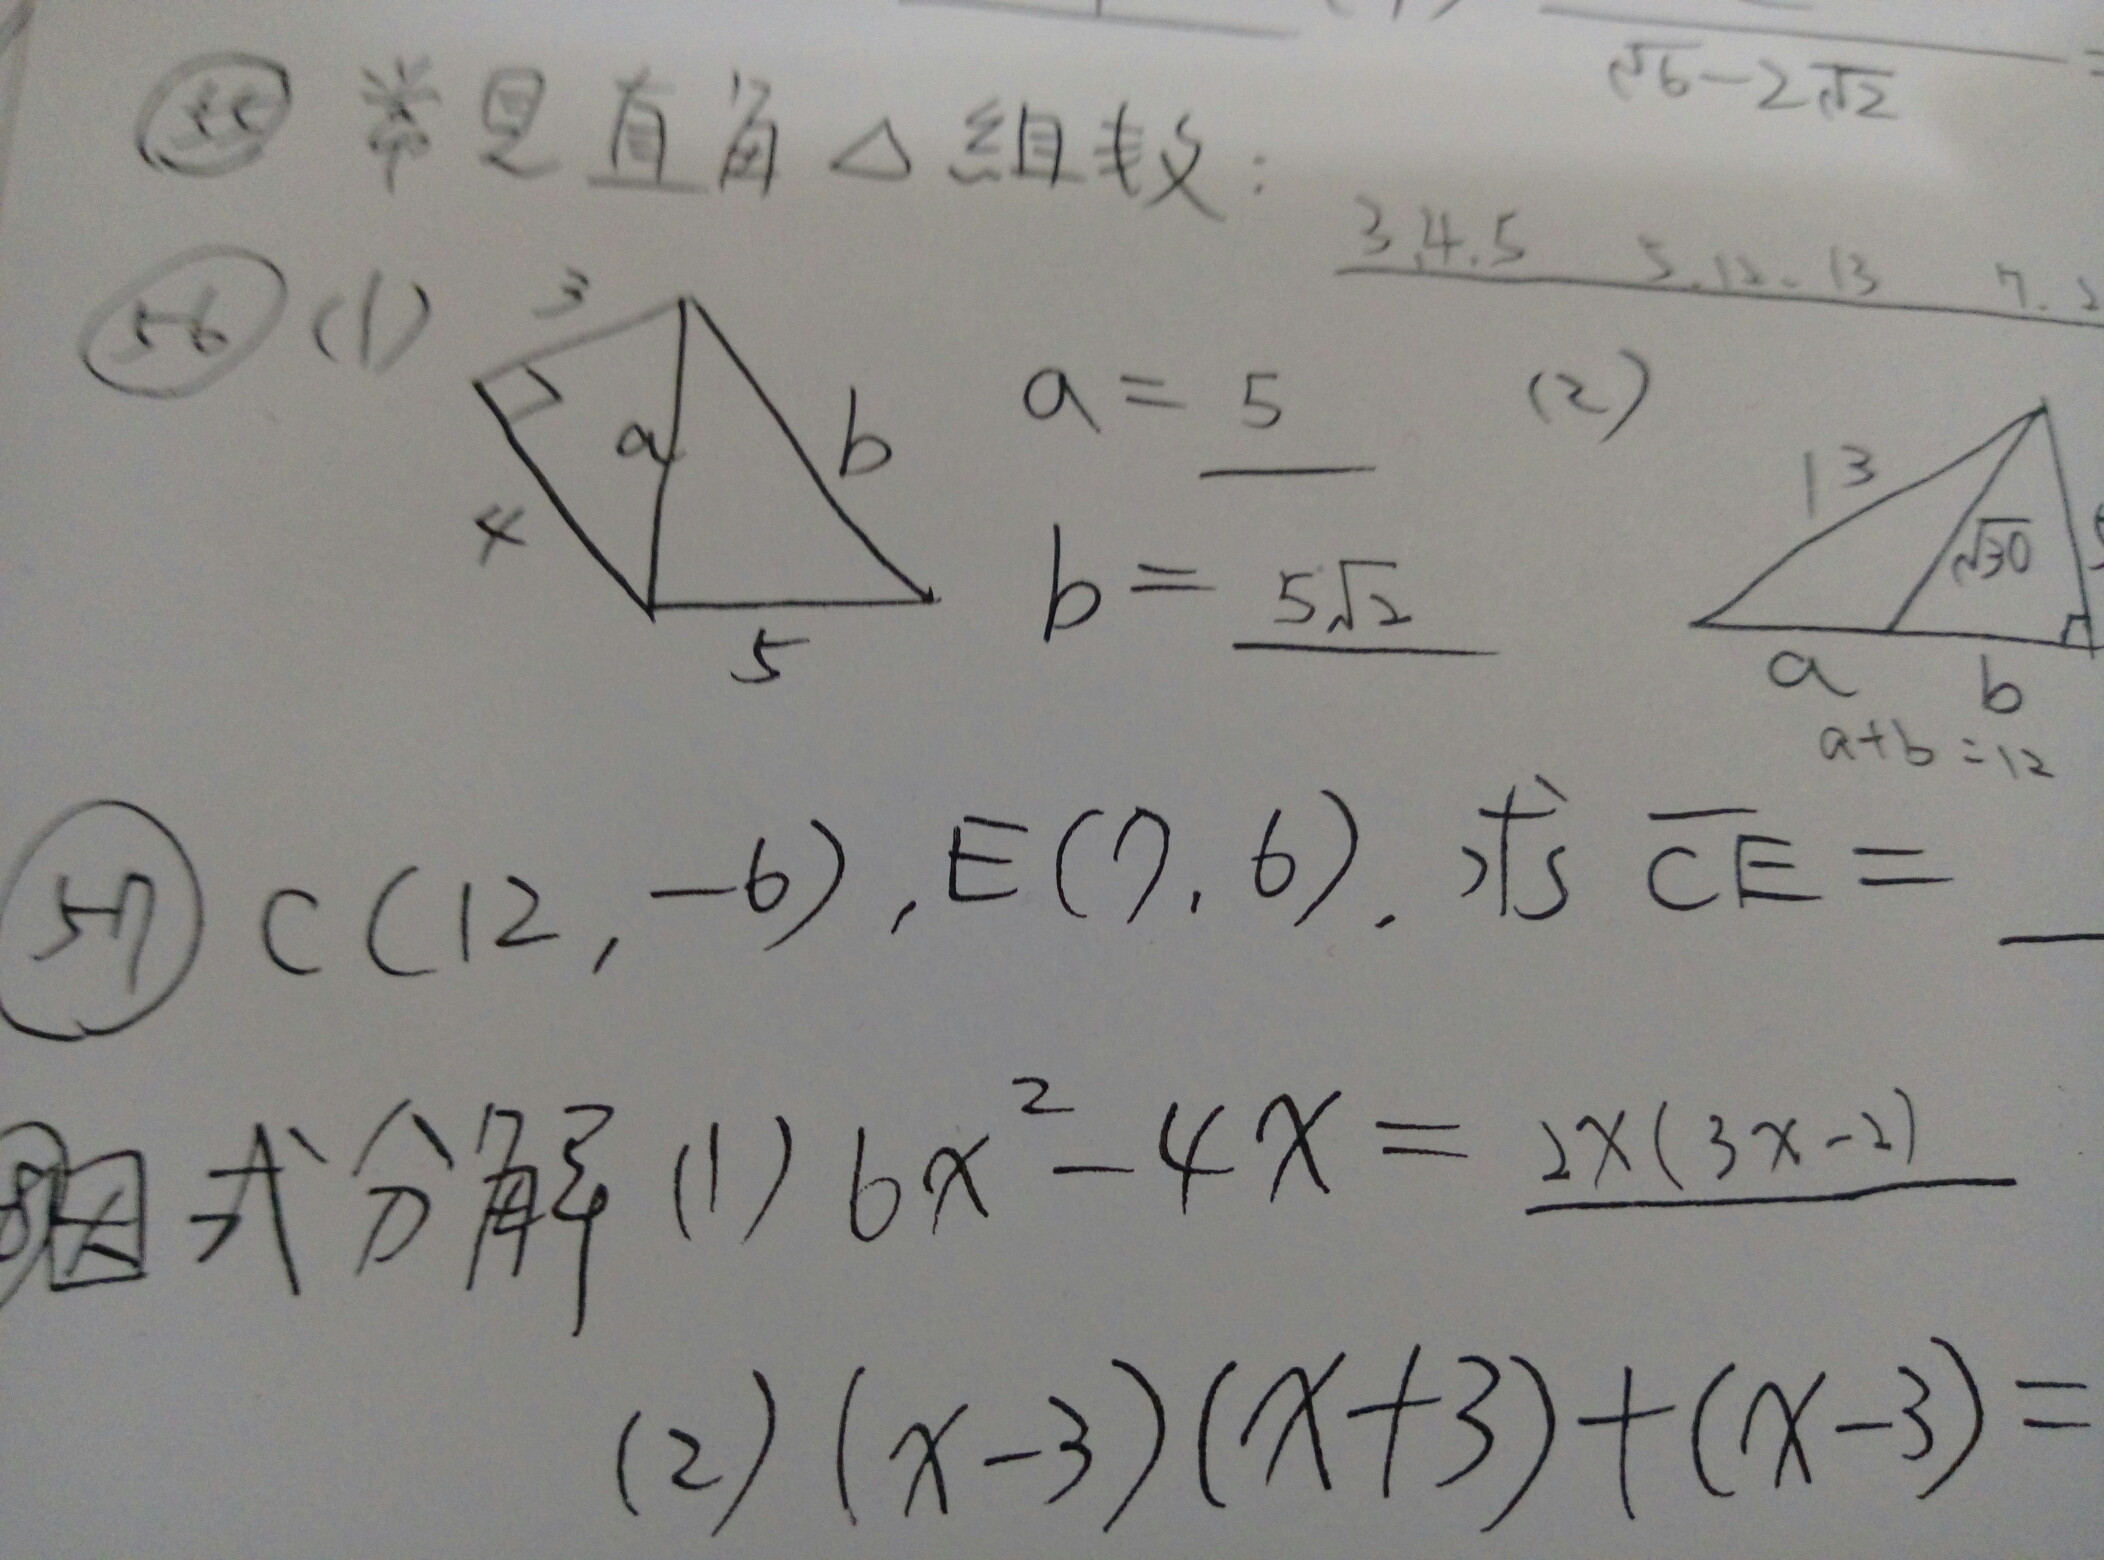 √6-2√2 =
55 常見直角△組數:
3.4.5 5.12.13 7.2
56 (1) 3 a b 4 5 a = 5 b = 5√2
(2) 13 √30 a b
a+b=12
57 C(12,-6),E(7.6).求CE=
因式分解(1)6x²-4x=2x(3x-2)
(2)(x-3)(x+3)+(x-3)=